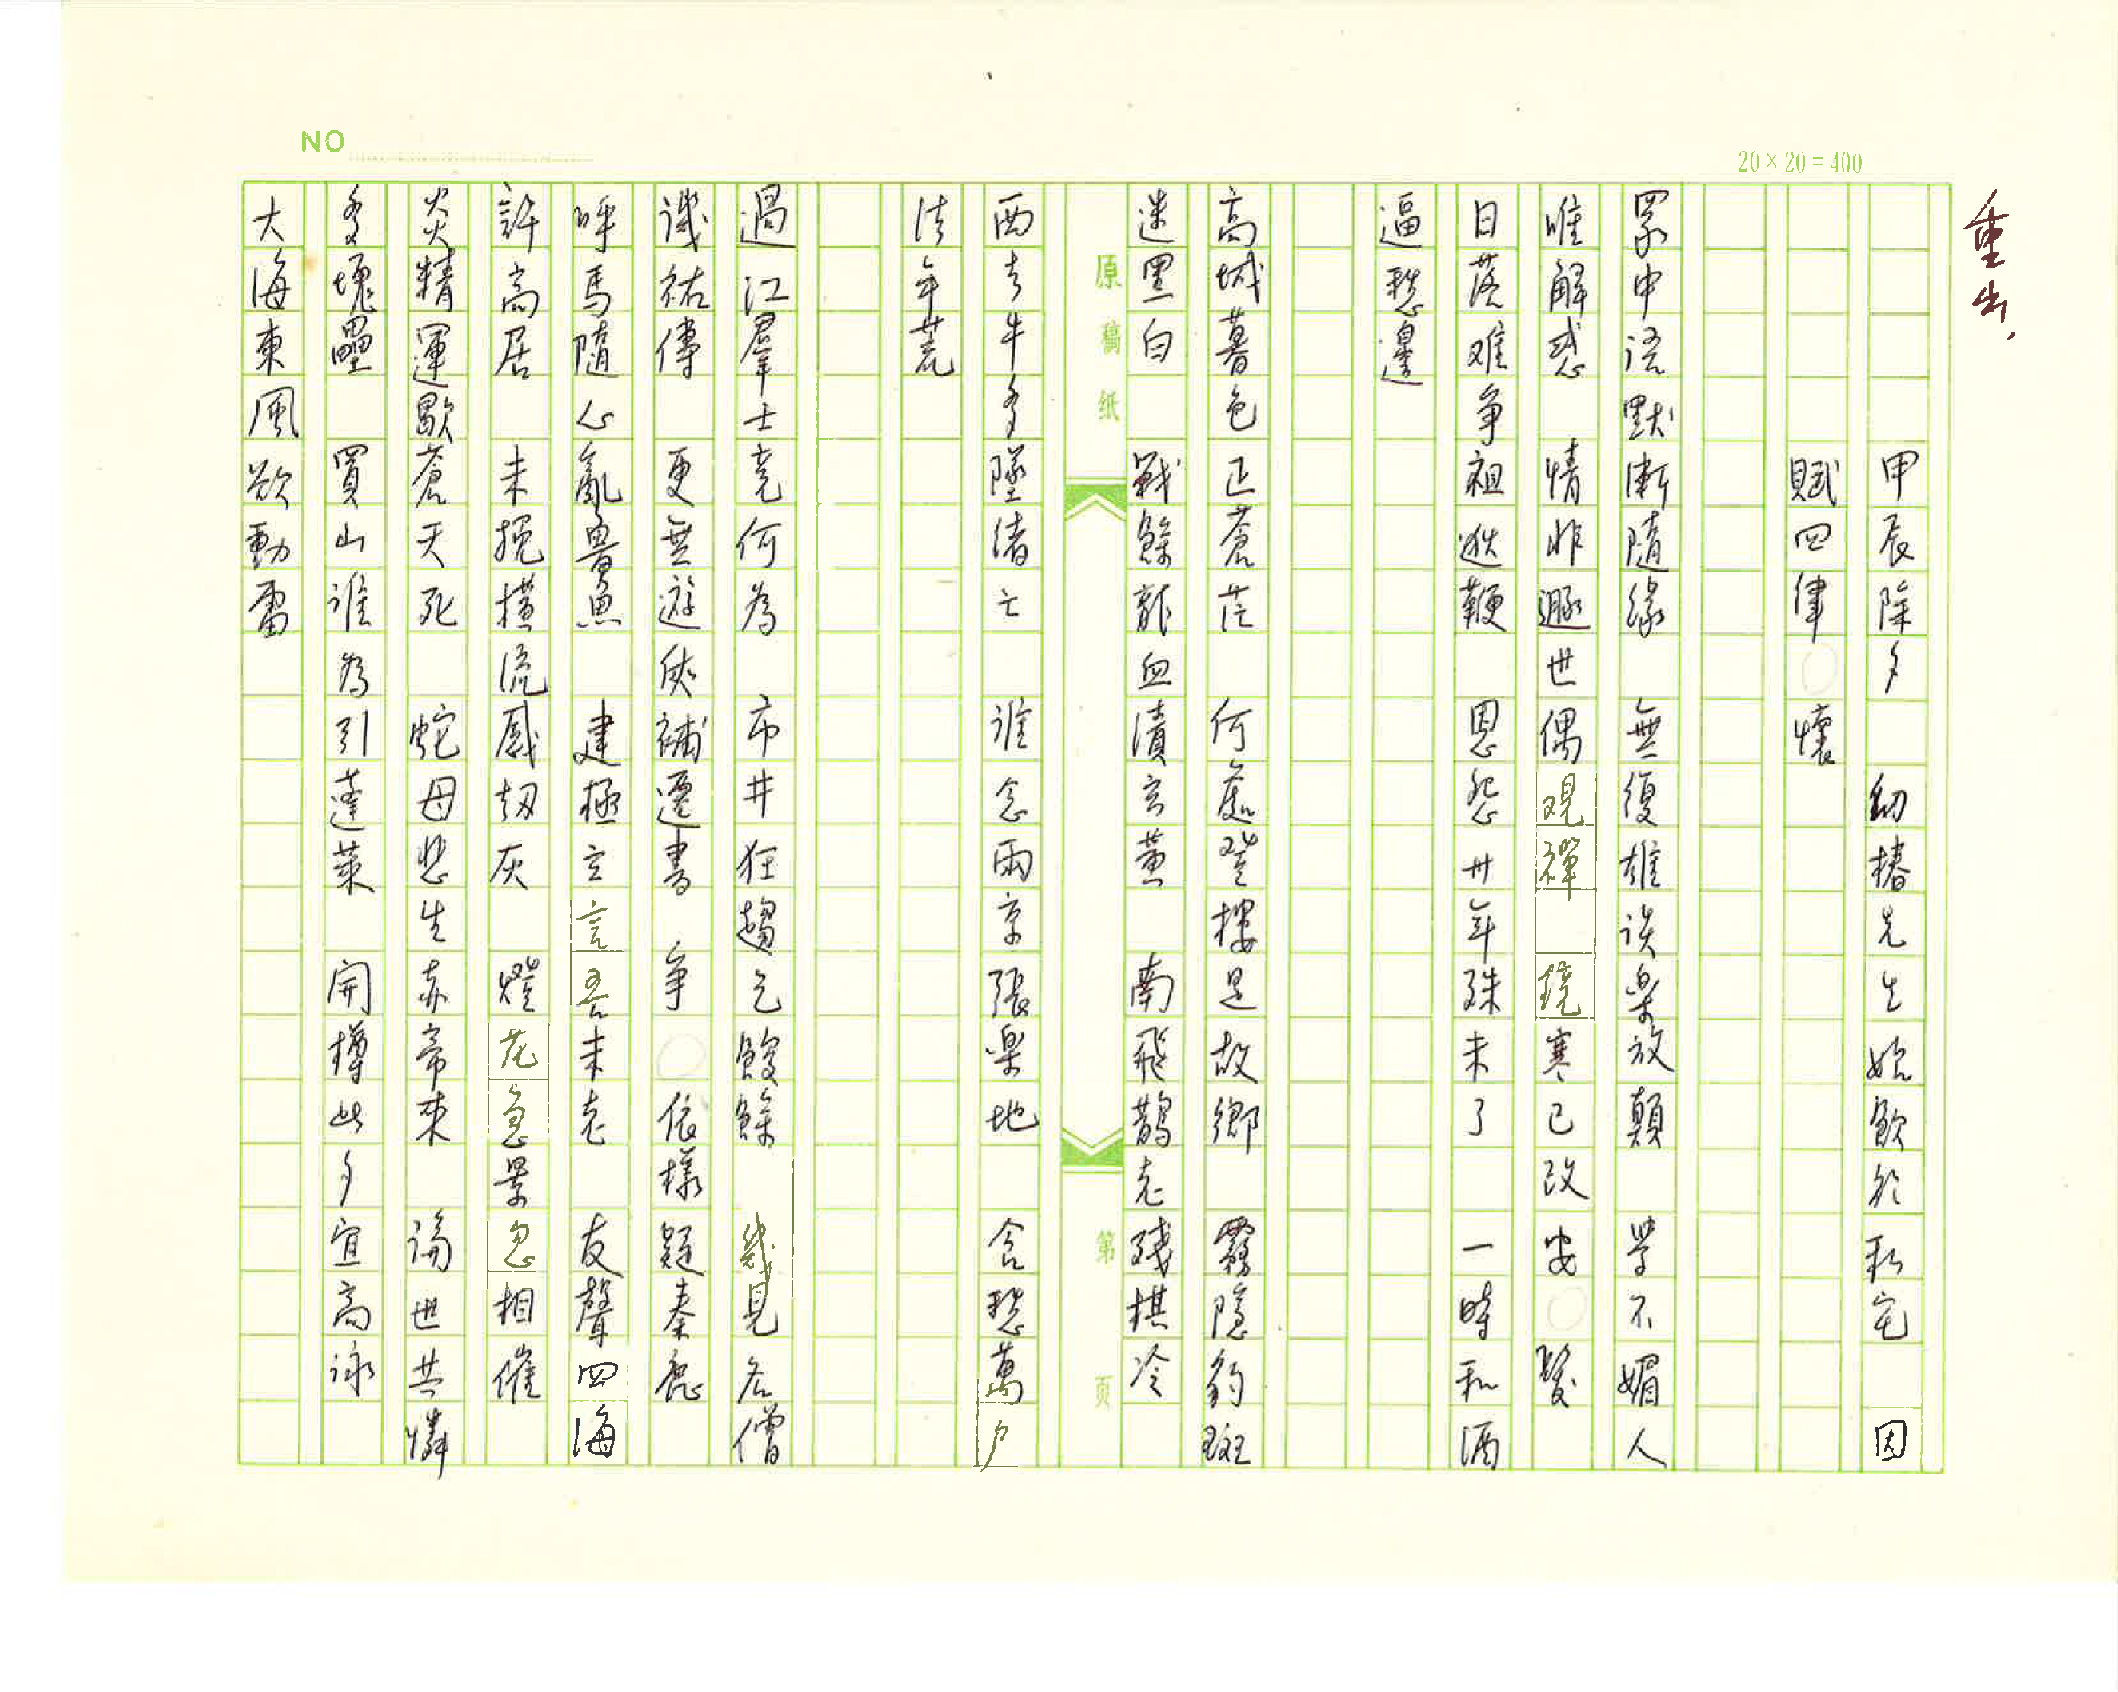 重出,
NO
20×20=400
甲辰除夕 幼椿先生始飲於私宅 因
賦四律 懷
罘中語默漸隨緣 無復雄談楽放顛 學不媚人
唯解惑 情非遯世偶覘禪 鏡寒已改安 鬢
日落难爭祖逖鞭 恩怨卅年殊未了 一時和酒
逼愁邊
高城暮色正蒼茫 何處登樓是故鄉 霧隱豹斑
迷黑白 戰餘龍血漬玄黃 南飛鵲老殘棋冷
原稿纸 第 页
西去牛多墜渚亡 誰念兩京張楽地 含愁萬戶
法年荒
過江羣士竟何為 市井狂趨乞餕餘 幾見名僧
譏祐傳 更無遊俠補遷書 爭 依樣疑秦鹿
呼馬隨心亂魯魚 建極立言吾未老 友聲四海
許高居 未挽橫流感劫灰 燈花急景忽相催
炎精運歇蒼天死 蛇母悲生赤帝來 謫世共憐
多塊壘 買山誰為引蓬萊 開樽此夕宜高詠
大海東風欲動雷